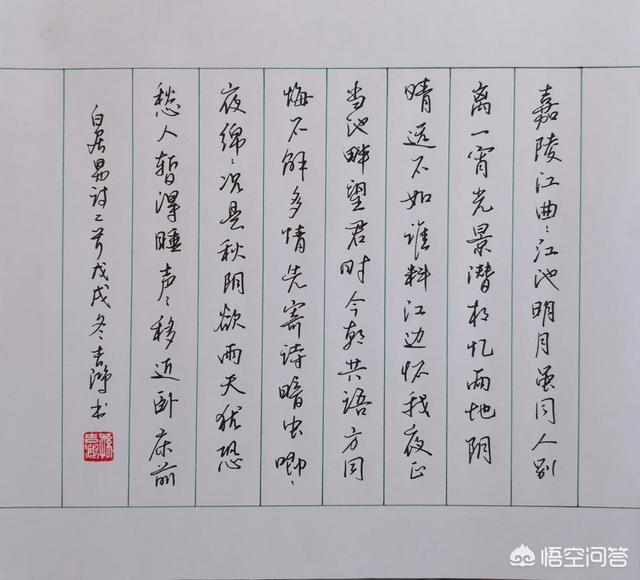 嘉陵江曲々江池明月虽同人别
离一宵光景潜相忆两地阴
晴远不如谁料江边怀我夜正
当池畔望君时今朝共语方同
悔不解多情先寄诗暗虫唧々
夜绵々况是秋阴欲雨天犹恐
愁人暂得睡声々移近卧床前
白居易诗二首戊戌冬书
悟空问答